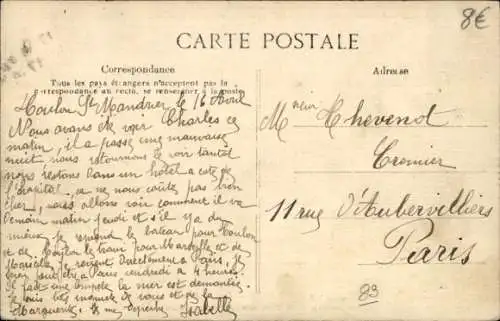 8€
CARTE POSTALE
Correspondance
Adresse
Tous les pays étrangers n'acceptent pas la
correspondance au recto, se renseigner à la poste
Toulon St Mandrier le 16 Avril
Nous avons été voir Charles ce
matin, il a passé une mauvaise
nuit nous retournons le voir tantot
nous restons dans un hôtel a coté de
l'hopital, a ne nous coute pas bien
cher, nous allons voir comment il va
Demain matin jeudi et s'il y a du
mieux je reprend le bateau pour Toulon
et de Toulon le train pour Marseille et de
Marseille je revient directement a Paris, je
pense être a Paris vendredi a 4 heures.
Il fait une tempete la mer est demontée
je suis bien
Marguerite. Je me depeche Isabelle
Monsieur Thevenot
Cremier
11 rue d'Aubervilliers
Paris
83